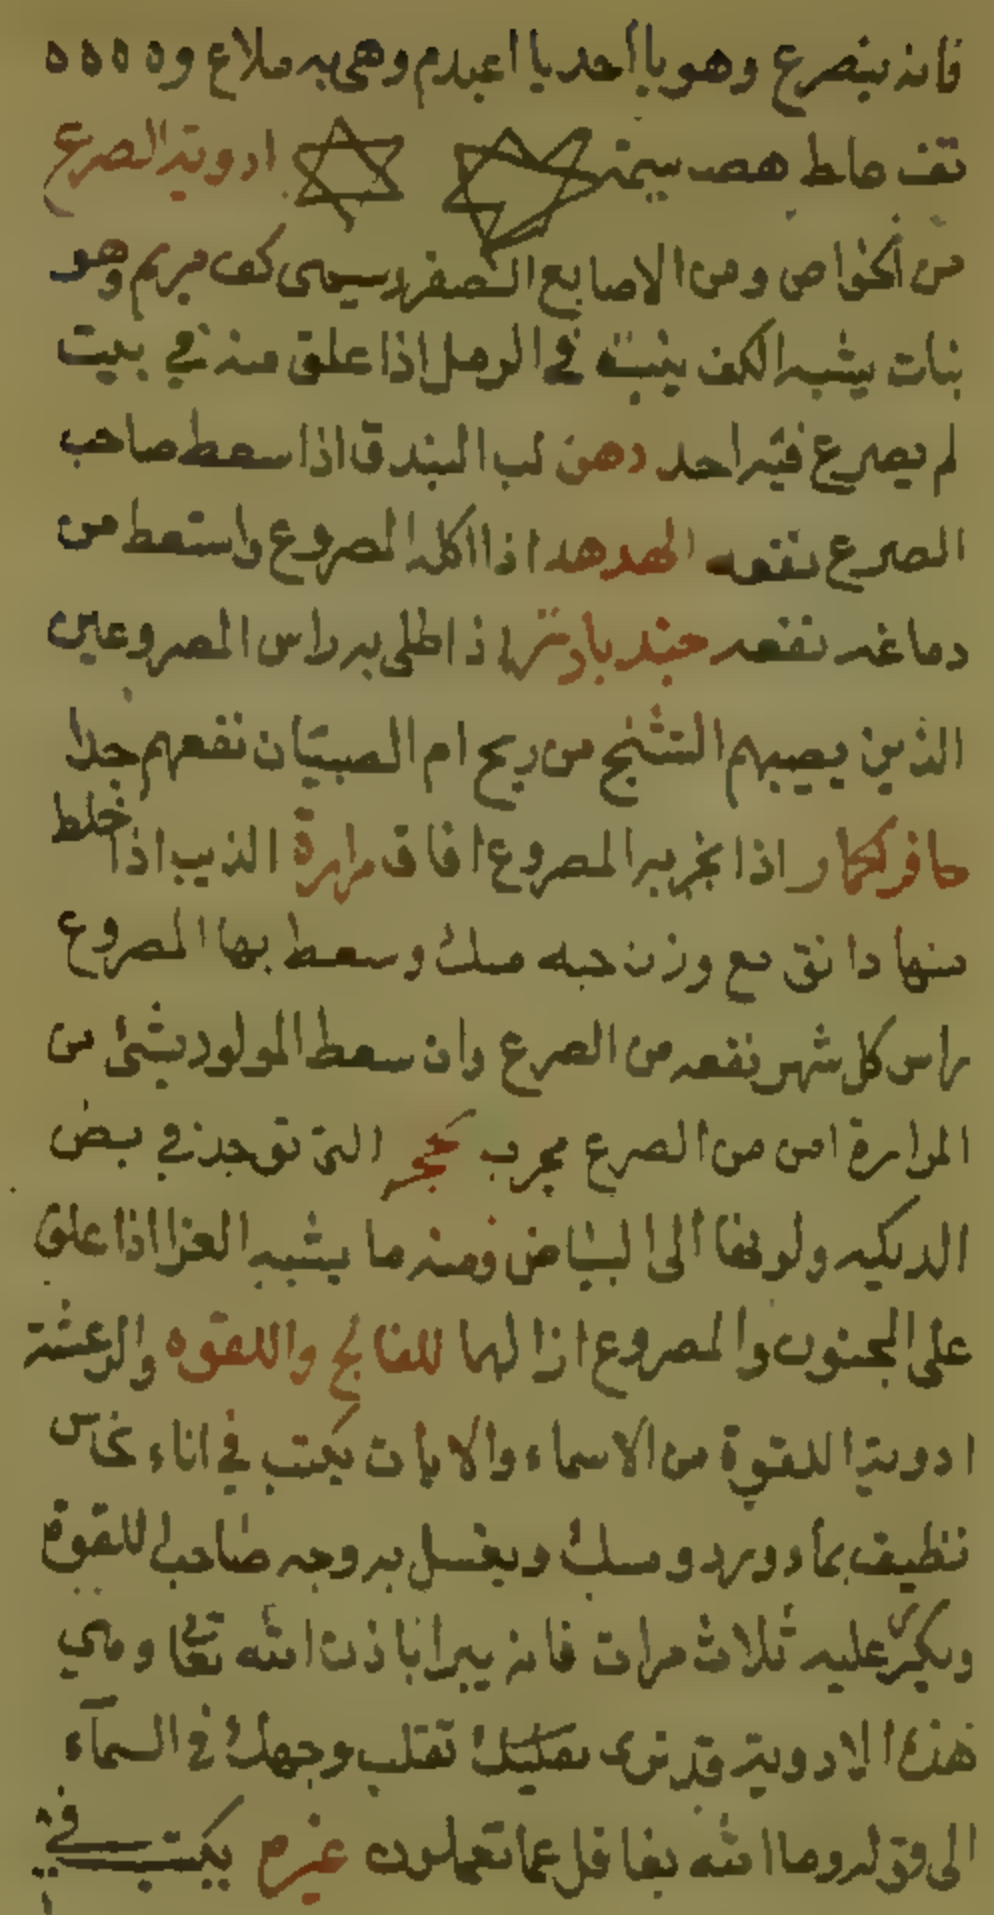 فانه ينصرع وهو يا احد يا اعبدم وهي به ملاع و ه ه ه ه
تف ماط هصه سيمه ادوية الصرع
من الخواص ومن الاصابع الصفر يسمى كف مريم وهو
نبات يشبه الكف ينبت في الرمل اذا علق منه في بيت
لم يصرع فيه احد دهن لب البندق اذا سعط صاحب
الصرع نفعه الهدهد اذا اكله المصروع واستعط من
دماغه نفعه جندبادستر اذا طلى به راس المصروعين
الذين يصيبهم التشنج من ريح ام الصبيان نفعهم جدا
حافر الحمار اذا بخر به المصروع افاق مرارة الذيب اذا خلط
منها دانق مع وزن حبه مسك وسعط بها المصروع
راس كل شهر نفعه من الصرع وان سعط المولود بشئ من
المرارة امن من الصرع مجرب حجر التي توجد في بيض
الديكيه ولونها الى البياض ومنه ما يشبه اذا علق
على المجنون والمصروع ازالها للفالج واللقوه والرعشة
ادوية اللقوة من الاسماء والايات يكتب في اناء نحاس
نظيف بماورد ومسك ويغسل به وجه صاحب اللقوة
ويكرر عليه ثلاث مرات فانه يبرا باذن الله تعا وهي
هذه الادوية قد نرى تقلب وجهك في السمآء
الى قوله وما الله بغافل عما تعملون غيره يكتب في